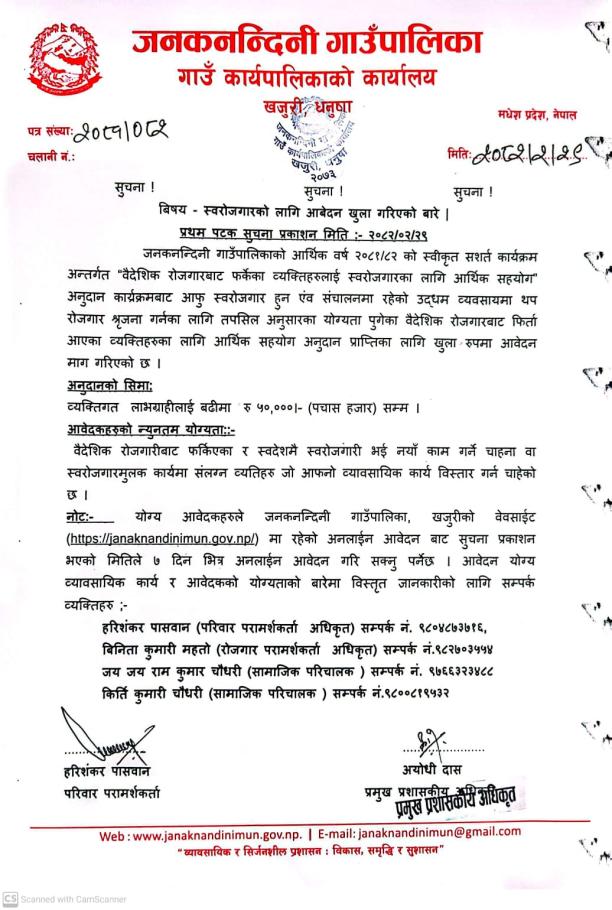 जनकनन्दिनी गाउँपालिका
गाउँ कार्यपालिकाको कार्यालय
खजुरी, धनुषा
मधेश प्रदेश, नेपाल
पत्र संख्या: २०८१/०८२
चलानी नं.:
मिति: २०८२/२/२९
जनकनन्दिनी
गाउँ कार्यपालिकाको कार्यालय
खजुरी, धनुषा
२०७३
सुचना ! सुचना ! सुचना !
बिषय - स्वरोजगारको लागि आबेदन खुला गरिएको बारे |
प्रथम पटक सुचना प्रकाशन मिति :- २०८२/०२/२९
जनकनन्दिनी गाउँपालिकाको आर्थिक वर्ष २०८१/८२ को स्वीकृत सशर्त कार्यक्रम
अन्तर्गत "वैदेशिक रोजगारबाट फर्केका व्यक्तिहरुलाई स्वरोजगारका लागि आर्थिक सहयोग"
अनुदान कार्य्रक्रमबाट आफु स्वरोजगार हुन एंव संचालनमा रहेको उद्धम व्यवसायमा थप
रोजगार श्रृजना गर्नका लागि तपसिल अनुसारका योग्यता पुगेका वैदेशिक रोजगारबाट फिर्ता
आएका व्यक्तिहरुका लागि आर्थिक सहयोग अनुदान प्राप्तिका लागि खुला रुपमा आवेदन
माग गरिएको छ |
अनुदानको सिमा:
व्यक्तिगत लाभग्राहीलाई बढीमा रु ५०,०००|- (पचास हजार) सम्म |
आवेदकहरुको न्युनतम योग्यता::-
वैदेशिक रोजगारीबाट फर्किएका र स्वदेशमै स्वरोजगारी भई नयाँ काम गर्ने चाहना वा
स्वरोजगारमुलक कार्यमा संलग्न व्यतिहरु जो आफनो व्यावसायिक कार्य विस्तार गर्न चाहेको
छ |
नोट:- योग्य आवेदकहरुले जनकनन्दिनी गाउँपालिका, खजुरीको वेवसाईट
(https://janaknandinimun.gov.np/) मा रहेको अनलाईन आवेदन बाट सुचना प्रकाशन
भएको मितिले ७ दिन भित्र अनलाईन आवेदन गरि सक्नु पर्नेछ | आवेदन योग्य
व्यावसायिक कार्य र आवेदकको योग्यताको बारेमा विस्तृत जानकारीको लागि सम्पर्क
व्यक्तिहरु ;-
हरिशंकर पासवान (परिवार परामर्शकर्ता अधिकृत) सम्पर्क नं. ९८०४८७३७१६,
बिनिता कुमारी महतो (रोजगार परामर्शकर्ता अधिकृत) सम्पर्क नं.९८२७०३५५४
जय जय राम कुमार चौधरी (सामाजिक परिचालक ) सम्पर्क नं. ९७६६३२३४८८
किर्ति कुमारी चौधरी (सामाजिक परिचालक ) सम्पर्क नं.९८००८१९५३२
हरिशंकर पासवान
परिवार परामर्शकर्ता
अयोधी दास
प्रमुख प्रशासकीय
प्रमुख प्रशासकीय अधिकृत
Web : www.janaknandinimun.gov.np. | E-mail: janaknandinimun@gmail.com
"व्यावसायिक र सिर्जनशील प्रशासन : विकास, समृद्धि र सुशासन"
CS Scanned with CamScanner